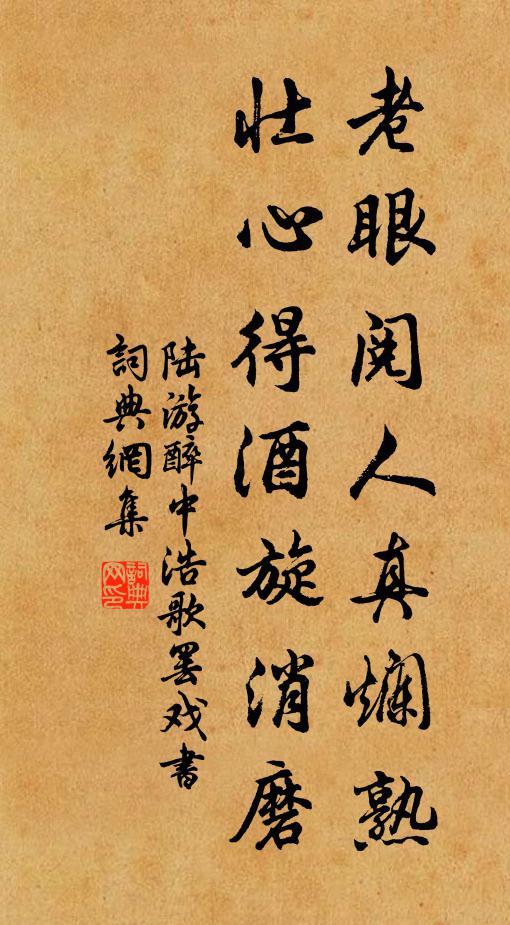 老眼閱人真爛熟
壯心得酒旋消磨
陆游醉中浩歌罢戏書
詞典網集
詞典网印